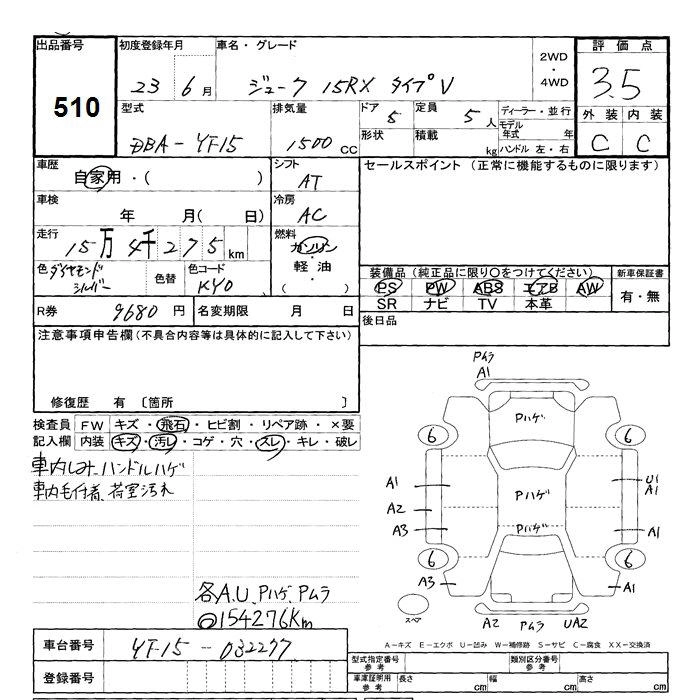 出品番号
510
初度登録年月
23 6月
車名・グレード
ジューク 15RX タイプV
2WD
・
4WD
評価点
3.5
外装 内装
C C
型式
DBA-YF15
排気量
1500 CC
ドア 5
形状
定員 5 人
積載 kg
ディーラー・並行
モデル年式 年
ハンドル 左・右
車歴
自家用・( )
シフト
AT
セールスポイント(正常に機能するものに限ります)
車検
年 月( 日)
冷房
AC
走行
15万4千275km
燃料
ガソリン
・
軽油
( )
色 ダイヤモンドシルバー
色替
色コード
KY0
装備品(純正品に限り○をつけてください)
PS PW ABS エアB AW
SR ナビ TV 本革
新車保証書
有・無
R券 9680円
名変期限 月 日
後日品
注意事項申告欄(不具合内容等は具体的に記入して下さい)
修復歴 有 〔箇所 〕
検査員記入欄
FW キズ・飛石・ヒビ割・リペア跡・×要
内装 キズ・汚レ・コゲ・穴・スレ・キレ・破レ
車内しみ、ハンドルハゲ
車内毛付着、荷室汚れ
各A.U、Pハゲ、Pムラ
◎154276Km
Pムラ
A1
Pハゲ
6 6
A1 Pハゲ U1
A1
A2
A3 Pハゲ A1
6 6
A3 A1
スペア
A2 Pムラ UA2
A-キズ E-エクボ U-凹み W-補修跡 S-サビ C-腐食 XX-交換済
車台番号
YF15-032277
登録番号
型式指定番号
参考
類別区分番号
参考
車庫証明用
参考
長さ cm 幅 cm 高さ cm